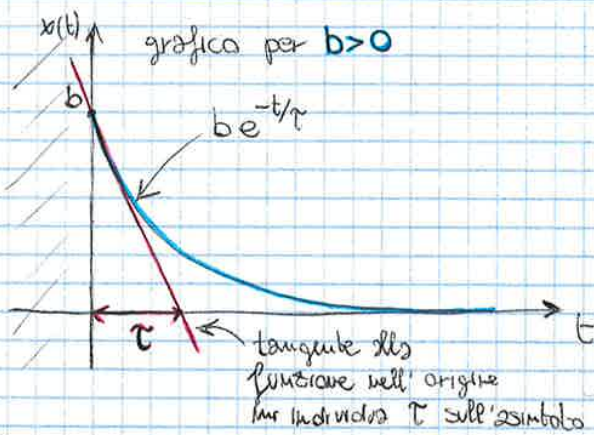 x(t)
grafico per b>0
b
be^-t/τ
τ
t
tangente alla
funzione nell'origine
individua τ sull'asintoto